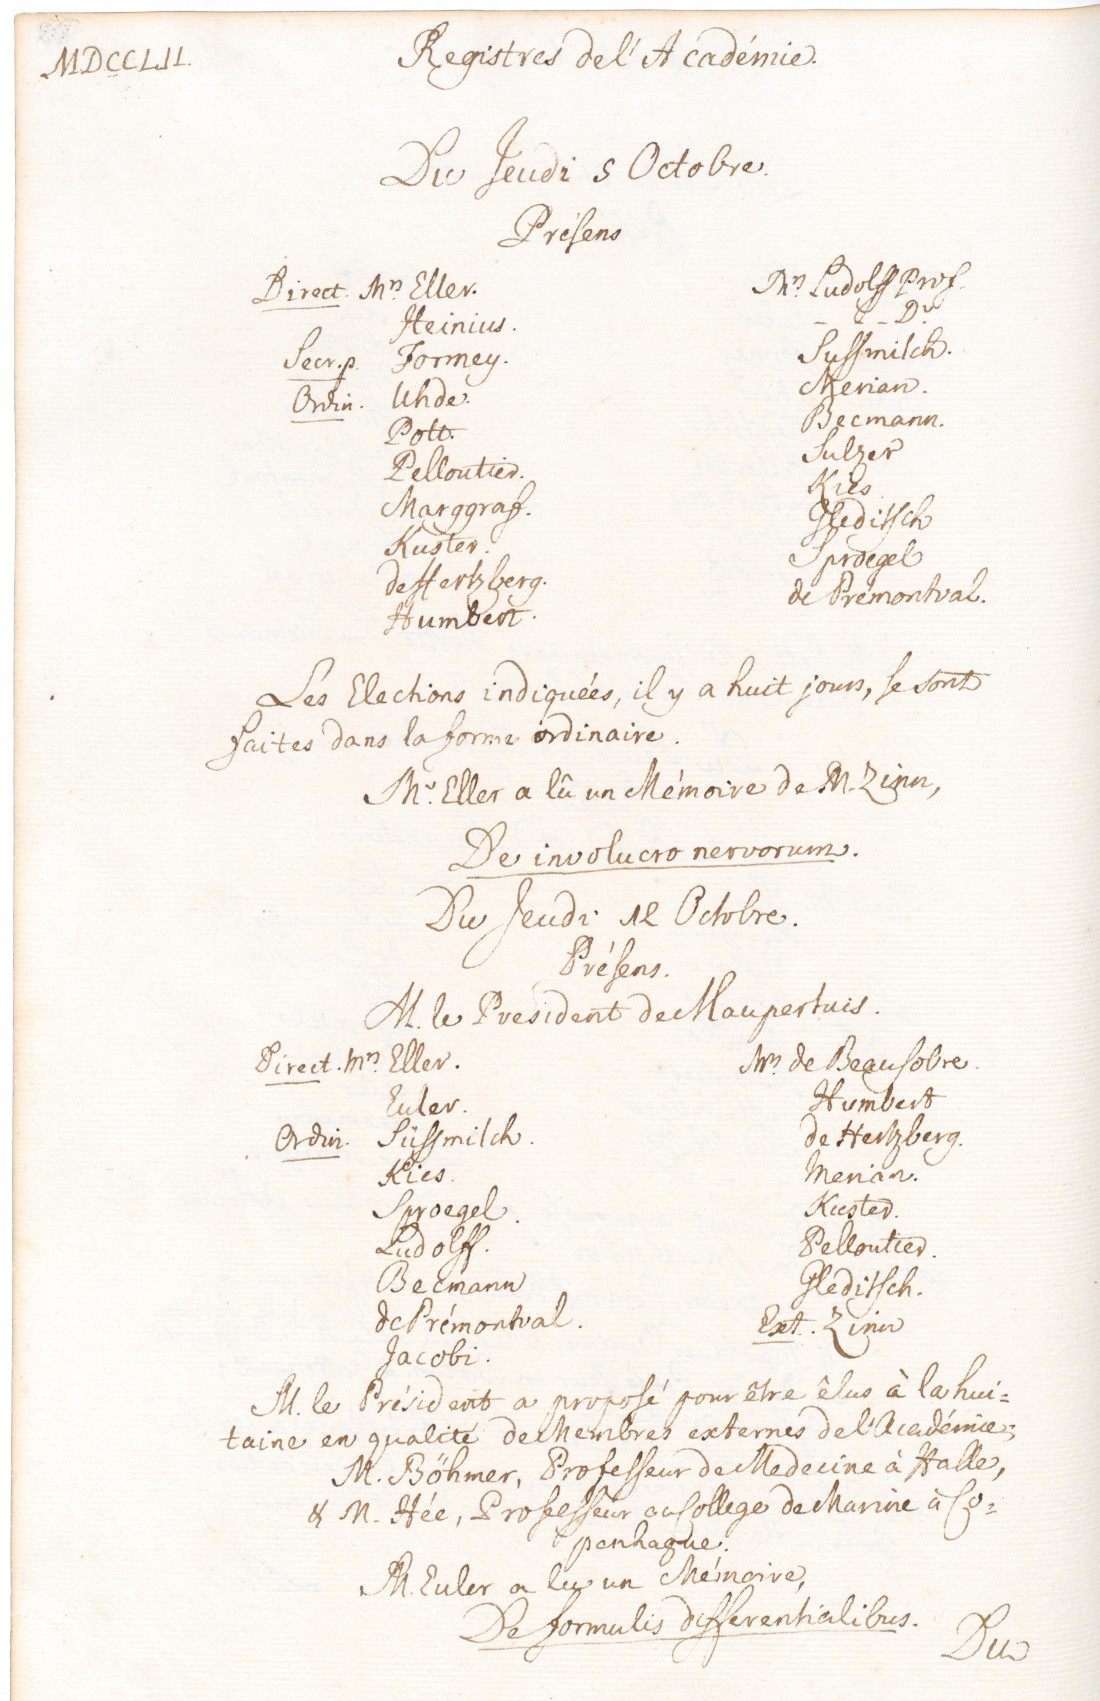 MDCCLII.
Registres de l'Académie.
Du Jeudi 5 Octobre.
Présens
Direct. Mrs Eller.
Heinius.
Secr. p. Formey.
Ordin. Uhde.
Pott.
Pelloutier.
Marggraf.
Kuster.
de Hertzberg.
Humbert.
Mrs Ludolff Prof.
- - e - Dr
Sussmilch.
Merian.
Becmann.
Sulzer
Kies
Gleditsch
Sproegel
de Prémontval.
Les Elections indiquées, il y a huit jours, se sont
faites dans la forme ordinaire.
Mr. Eller a lû un Mémoire de M. Zinn,
De involucro nervorum.
Du Jeudi 12 Octobre.
Présens.
M. le President de Maupertuis.
Direct. Mrs Eller.
Euler.
Ordin. Süssmilch.
Kies.
Sproegel.
Ludolff.
Becmann
de Prémontval.
Jacobi.
Mrs de Beausobre.
Humbert
de Hertzberg.
Merian.
Kuster.
Pelloutier.
Gleditsch.
Ext. Zinn
M. le Président a proposé pour être êlus à la hui=
taine en qualité de Membres externes de l'Académie;
M. Böhmer, Professeur de Medecine à Halle,
& M. Hée, Professeur au College de Marine à Co=
penhague.
M. Euler a lu un Mémoire,
De formulis differentialibus.
Du